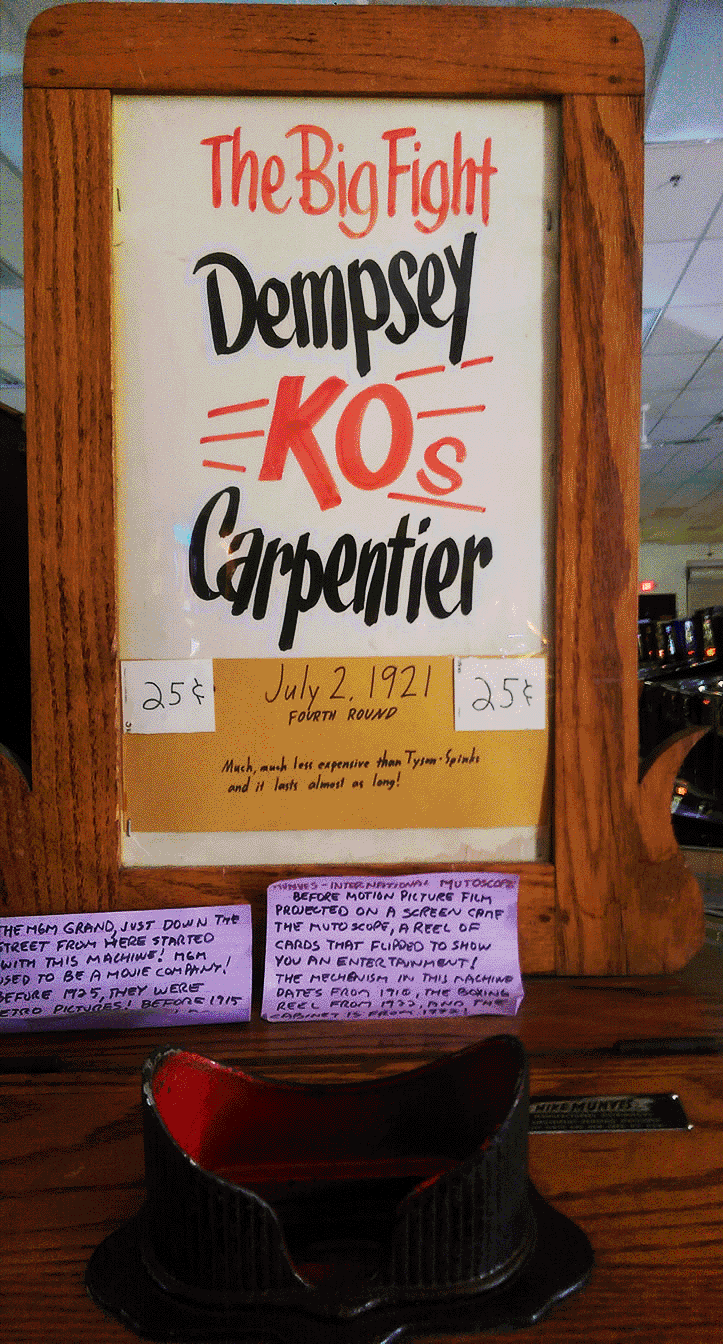 The Big Fight
Dempsey
KOs
Carpentier
25¢
July 2, 1921
25¢
FOURTH ROUND
Much, much less expensive than Tyson-Spinks
and it lasts almost as long!
THE MGM GRAND, JUST DOWN THE
STREET FROM HERE STARTED
WITH THIS MACHINE! MGM
USED TO BE A MOVIE COMPANY!
BEFORE 1925, THEY WERE
ETRO PICTURES! BEFORE 1915
MUNVES-INTERNATIONAL MUTOSCOPE
BEFORE MOTION PICTURE FILM
PROJECTED ON A SCREEN CAME
THE MUTOSCOPE, A REEL OF
CARDS THAT FLIPPED TO SHOW
YOU AN ENTERTAINMENT!
THE MECHENISM IN THIS MACHINE
DATES FROM 1910, THE BOXING
REEL FROM 1922, AND THE
CABINET IS FROM
MIKE MUNVES